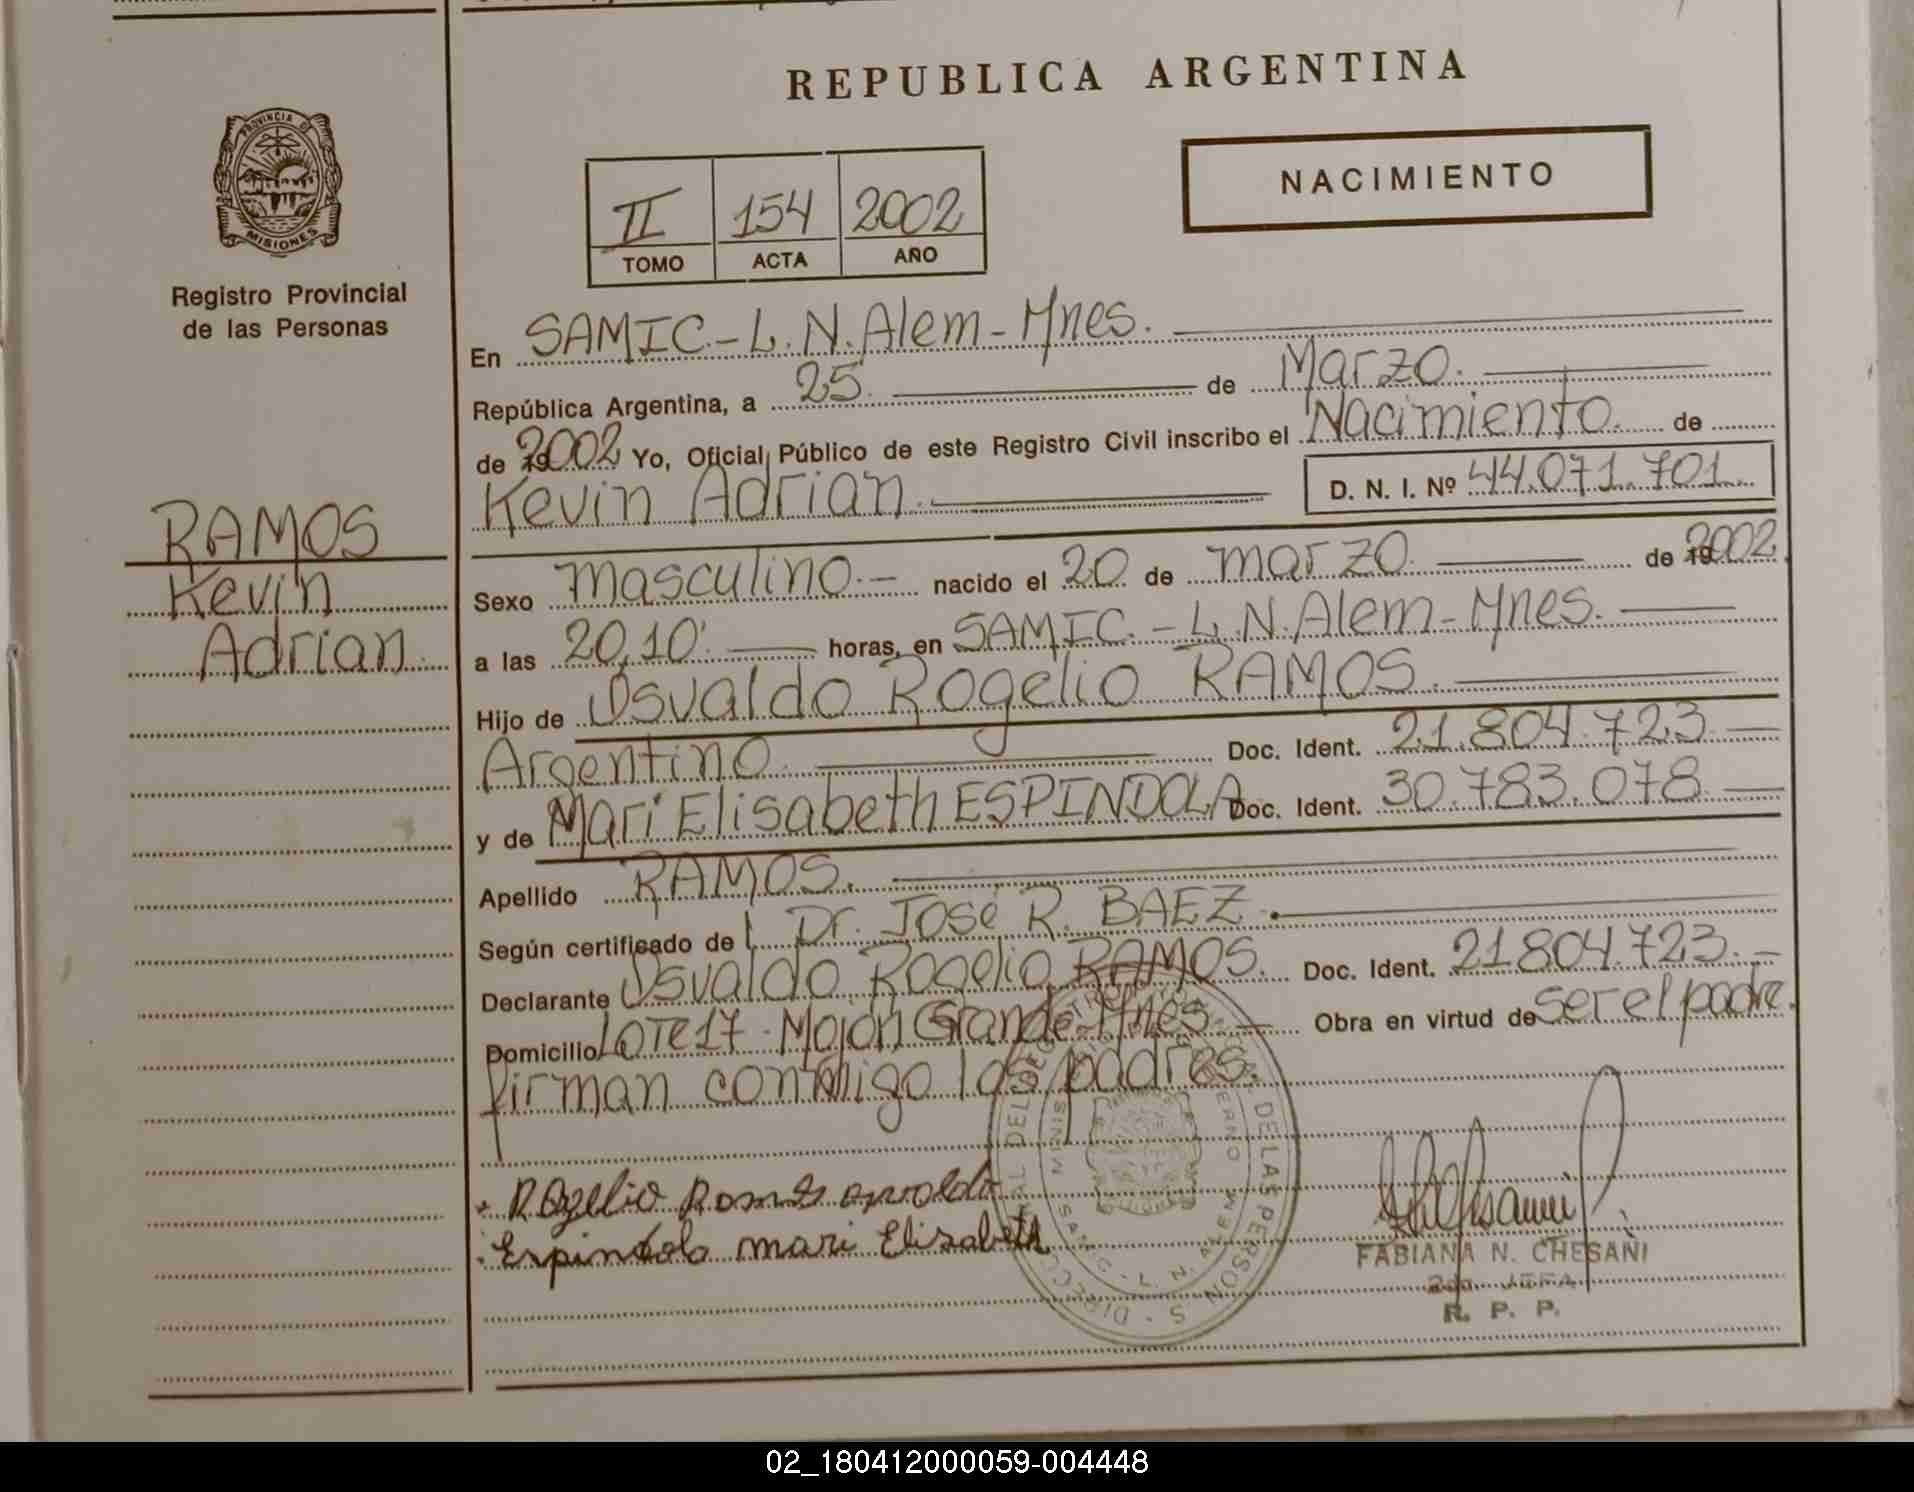 REPUBLICA ARGENTINA
PROVINCIA DE MISIONES
Registro Provincial
de las Personas
NACIMIENTO
II 154 2002
TOMO ACTA AÑO
En SAMIC-L.N.Alem-Mnes.
República Argentina, a 25 de Marzo.
de 2002 Yo, Oficial Público de este Registro Civil inscribo el Nacimiento de
Kevin Adrian. D. N. I. Nº 44.071.701.
RAMOS
Kevin
Adrian.
Sexo masculino.- nacido el 20 de marzo de 2002
a las 20,10 horas, en SAMIC.-L.N.Alem-Mnes.
Hijo de Osvaldo Rogelio RAMOS.
Argentino. Doc. Ident. 21.804.723.
y de Mari Elisabeth ESPINDOLA Doc. Ident. 30.783.078
Apellido RAMOS.
Según certificado de Dr. José R. BAEZ.
Declarante Osvaldo Rogelio RAMOS. Doc. Ident. 21804.723.-
Domicilio LOTE 17 - Mojon Grande-Mnes.- Obra en virtud de ser el padre.
firman conmigo los padres.
Rogelio Ramos osvaldo
Espindola mari Elizabeth
FABIANA N. CHESANI
2da. JEFA
R. P. P.
02_180412000059-004448